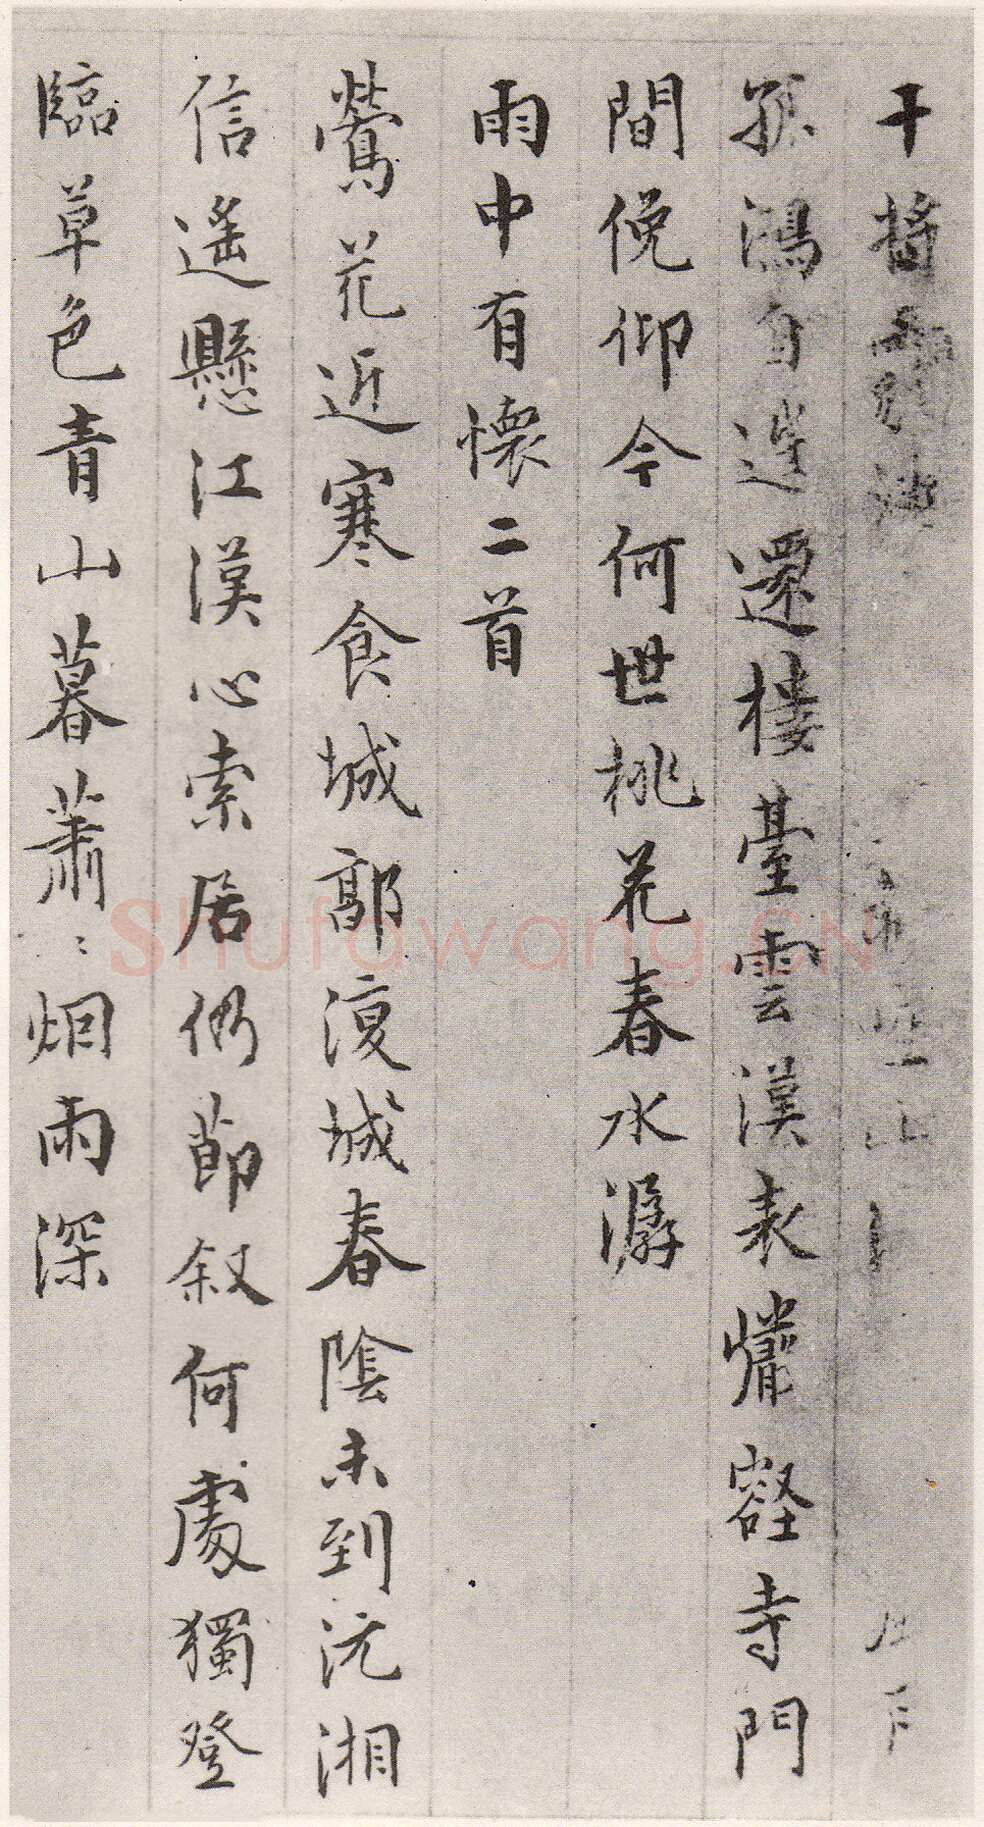 干將
孤鴻自還樓臺雲漢表壑寺門
間俛仰今何世桃花春水潺
雨中有懷二首
鶯花近寒食城郭復城春陰未到沅湘
信遙懸江漢心索居仍節叙何處獨登
臨草色青山暮蕭〻烟雨深
Shufawang.CN